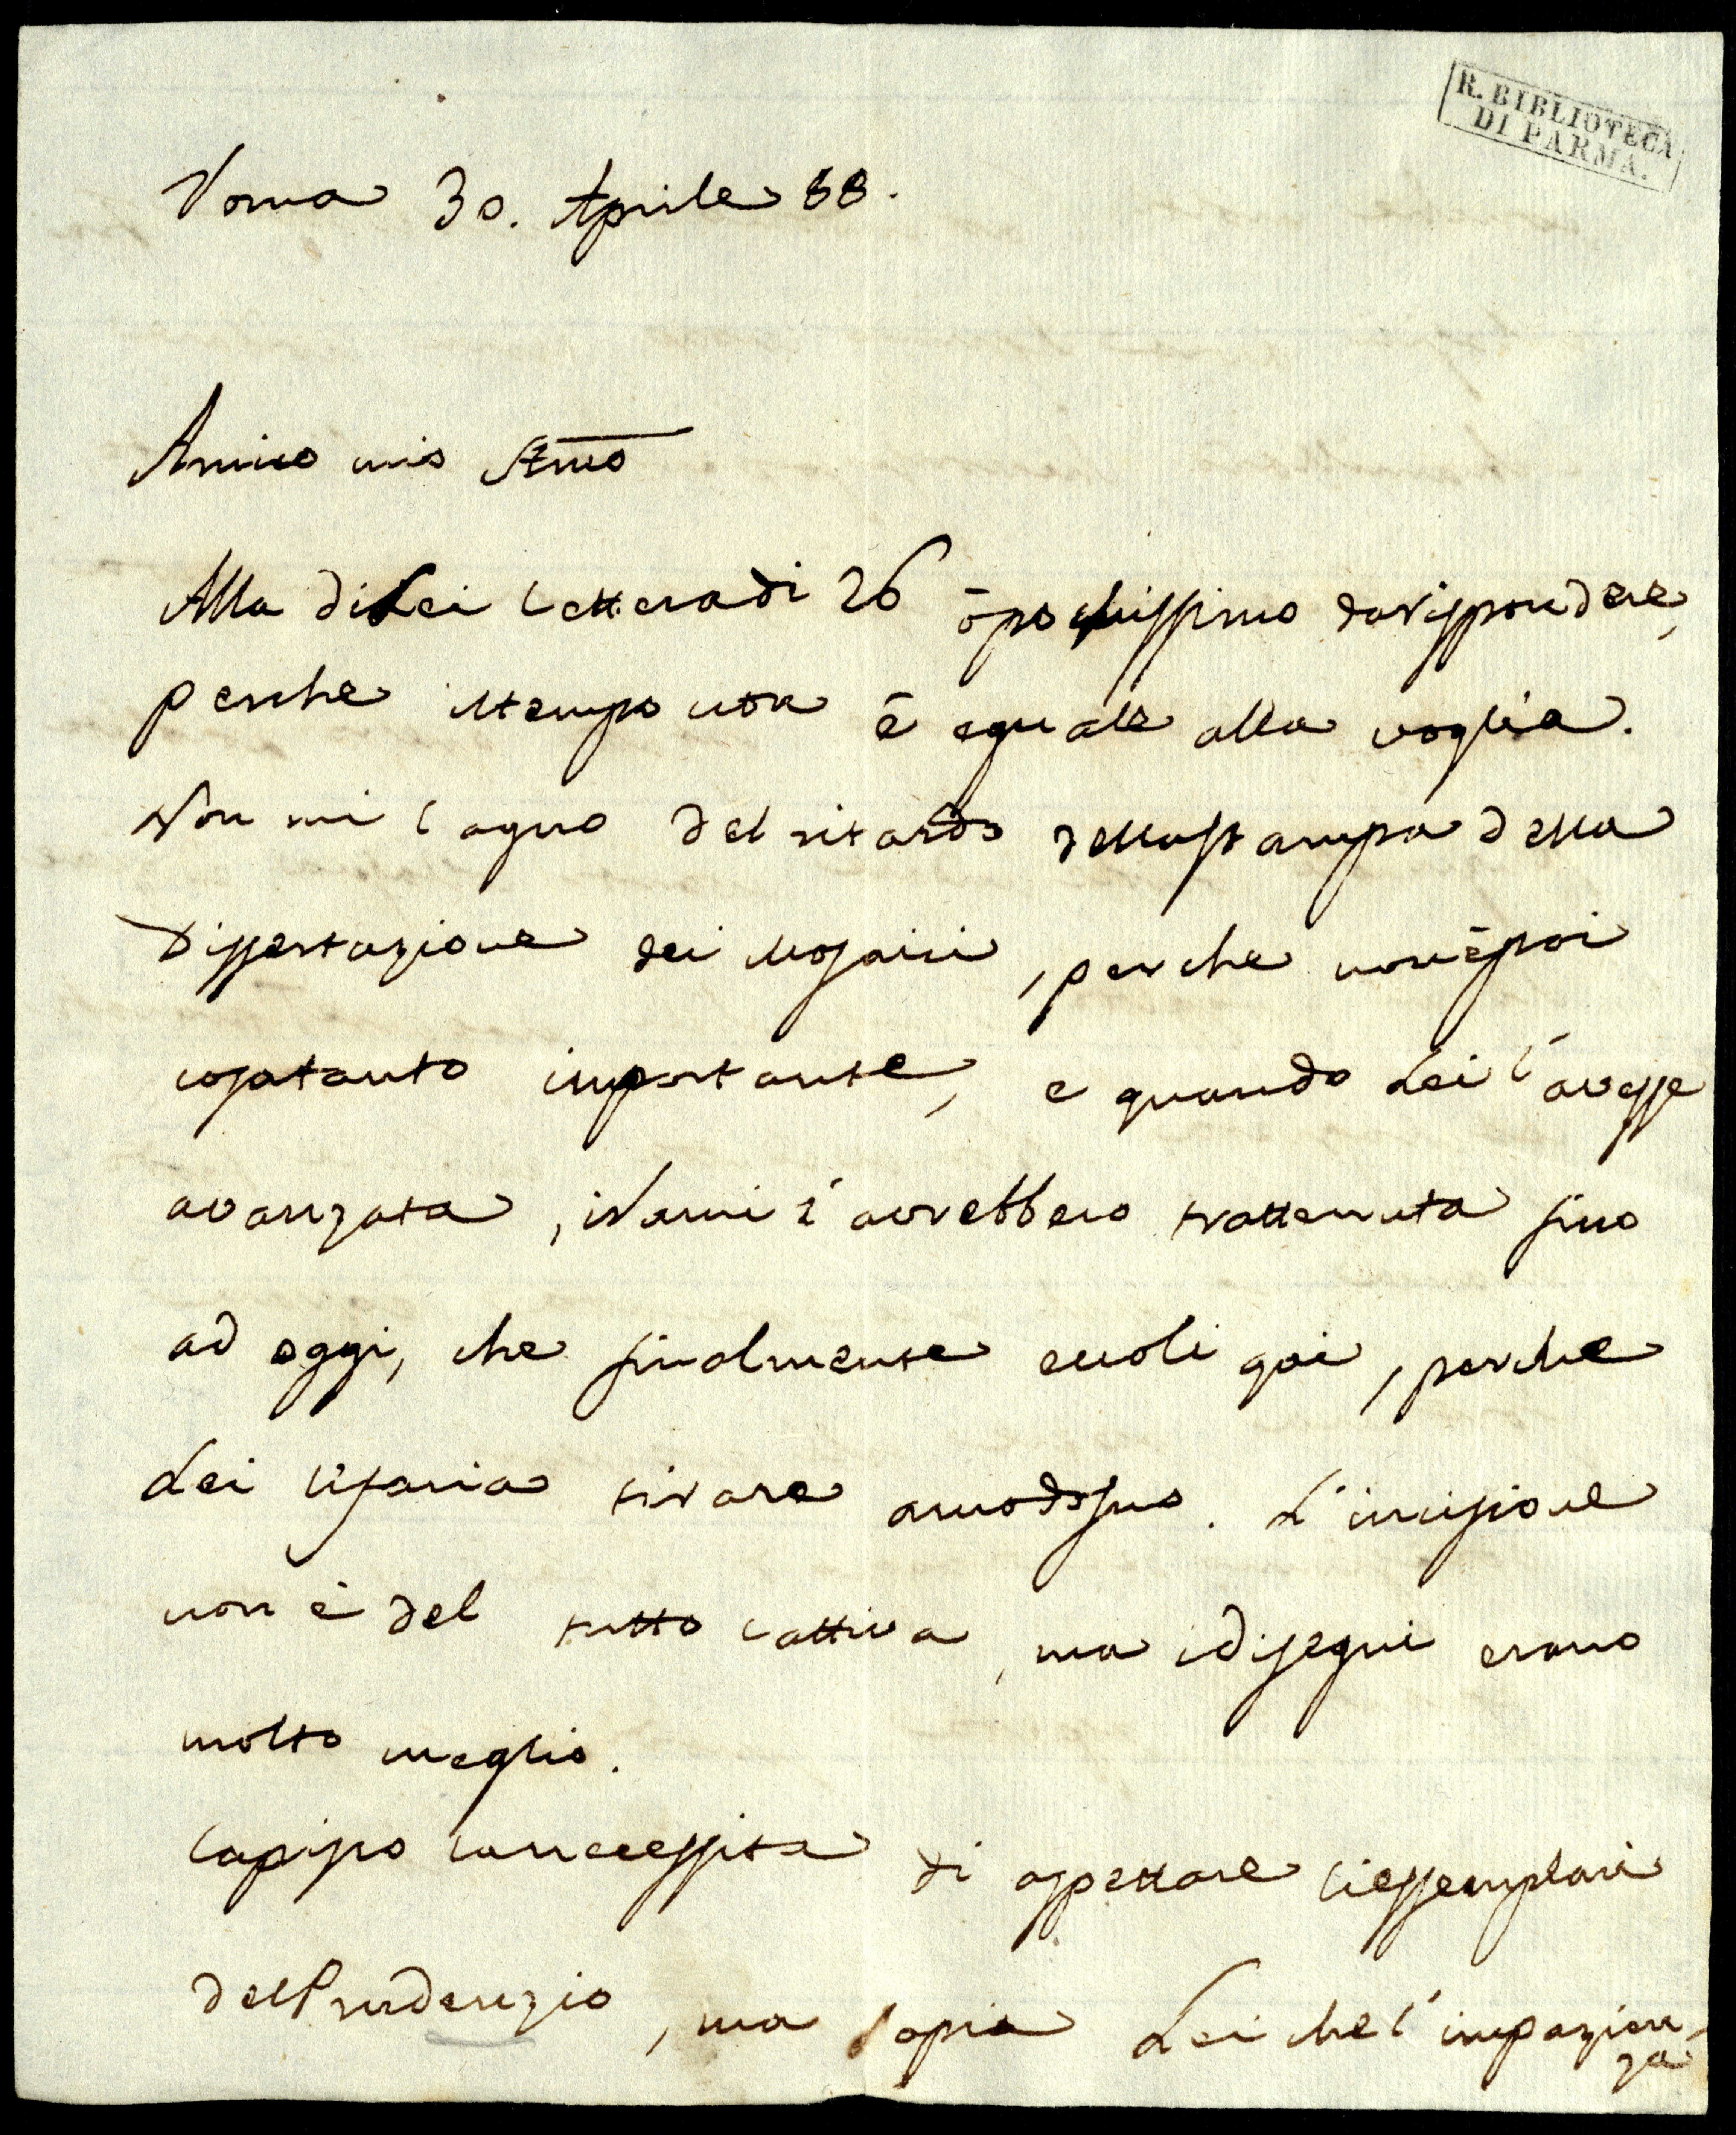 R. BIBLIOTECA
DI PARMA.
Roma 30. Aprile 88.
Amico mio Stmo
Alla di Lei lettera di 26 ò pochissimo da risspondere,
perche il tempo non è equale alla voglia.
Non mi lagno del ritardo della stampa della
Dissertazione dei Mosaici, perche non è poi
cosa tanto importante, e quando Lei l'avesse
avanzata, i Rami l'avrebbero trattenuta fino
ad oggi, che finalmente eccoli qui, perche
Lei li faria tirare a modo suo. L'incisione
non è del tutto cattiva, ma i disegni erano
molto meglio.
Capisso la neccessita di aspettare li essemplari
del Prudenzio, ma sapia Lei che l'impazien-
za